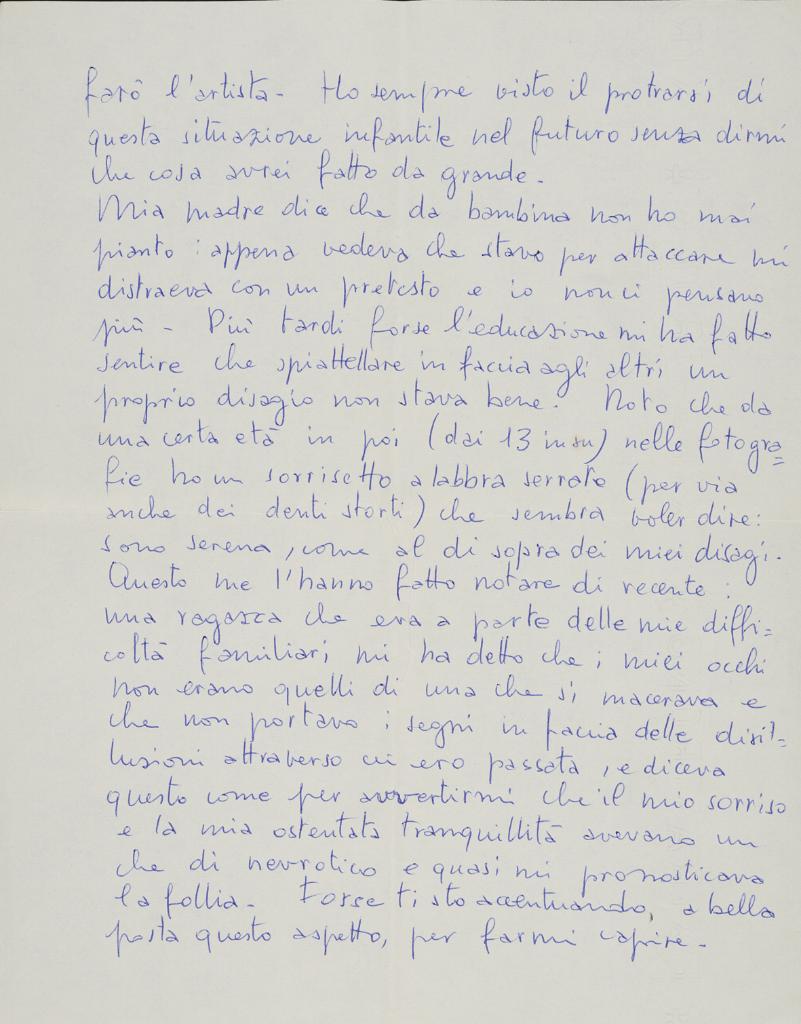 farò l'artista - Ho sempre visto il protrarsi di
questa situazione infantile nel futuro senza dirmi
che cosa avrei fatto da grande.
Mia madre dice che da bambina non ho mai
pianto : appena vedeva che stavo per attaccare mi
distraeva con un pretesto e io non ci pensavo
più - Più tardi forse l'educazione mi ha fatto
sentire che spiattellare in faccia agli altri un
proprio disagio non stava bene. Noto che da
una certa età in poi (dai 13 in su) nelle fotogra=
fie ho un sorrisetto a labbra serrate (per via
anche dei denti storti) che sembra voler dire:
sono serena, come al di sopra dei miei disagi.
Questo me l'hanno fatto notare di recente :
una ragazza che era a parte delle mie diffi=
coltà familiari mi ha detto che i miei occhi
non erano quelli di una che si macerava e
che non portavo i segni in faccia delle disil=
lusioni attraverso cui ero passata, e diceva
questo come per avvertirmi che il mio sorriso
e la mia ostentata tranquillità avevano un
che di nevrotico e quasi mi pronosticava
la follia - Forse ti sto accentuando, a bella
posta questo aspetto, per farmi capire -